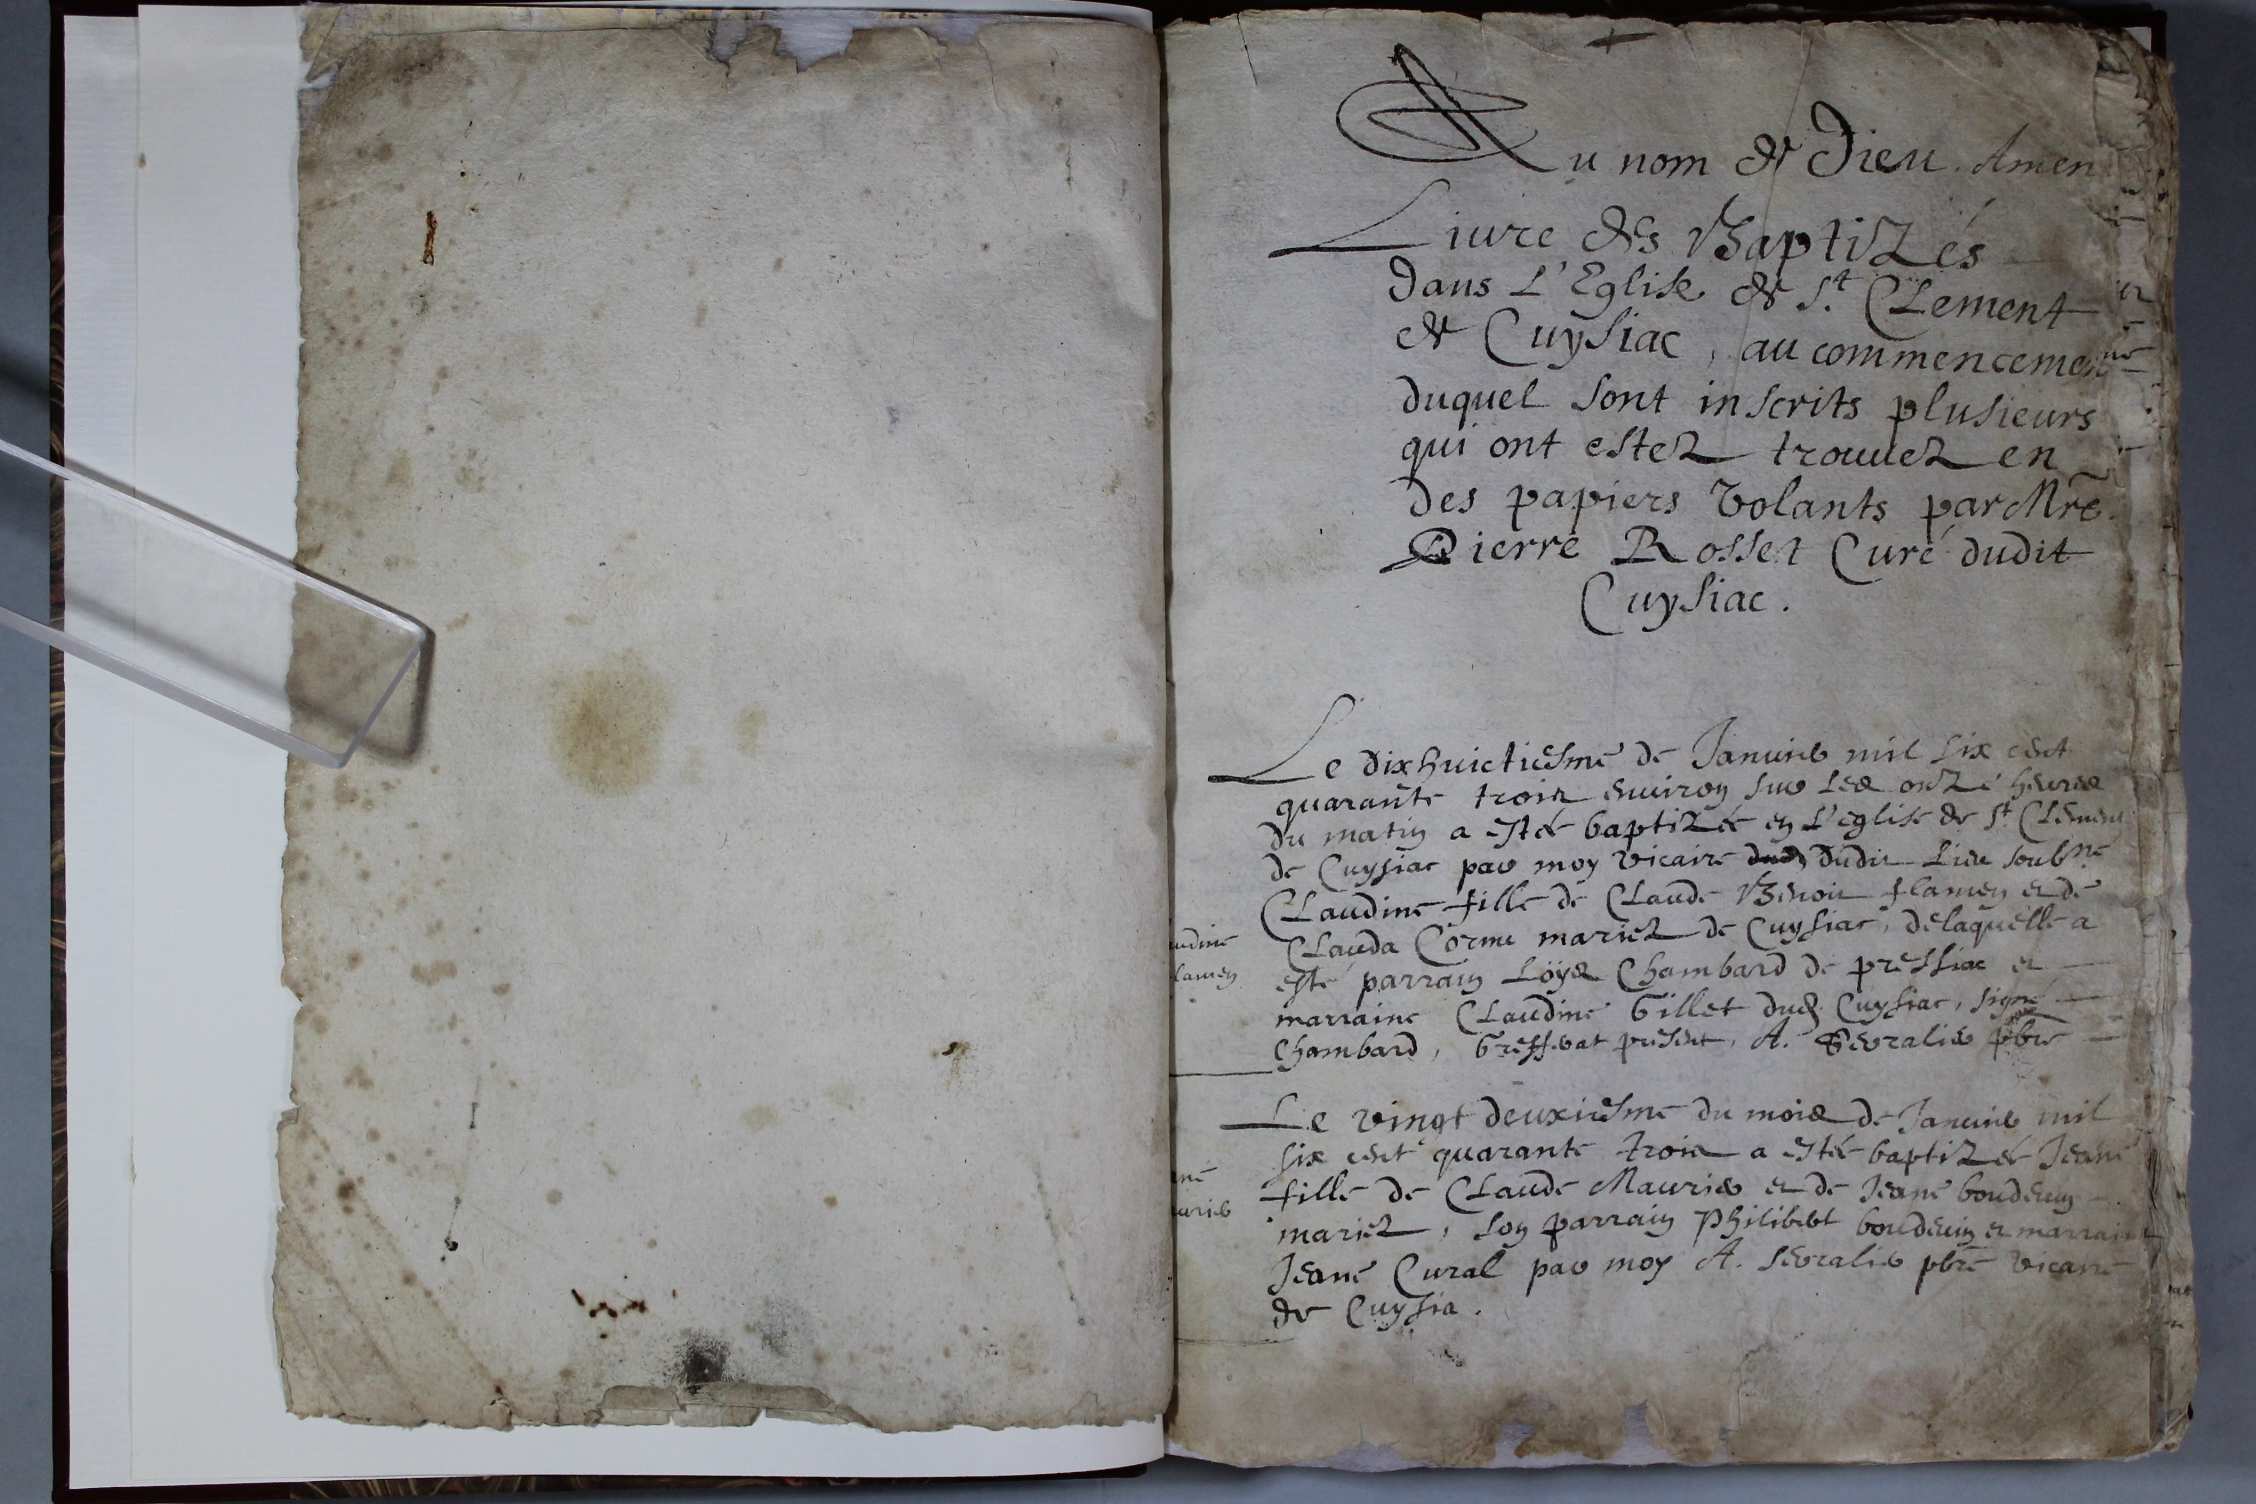 Au nom de Dieu. Amen
Livre des Baptizés
dans L'Eglise de St. Clement
de Cuysiac, au commencement
duquel sont inscrits plusieurs
qui ont estez trouuez en
des papiers volants par Mre.
Pierre Rosset Curé dudit
Cuysiac.
Le dixhuictiesme de Januier mil six cent
quarante trois enuiron sur les onze heures
du matin a estée baptizée en L'eglise de St Clement
de Cuysiac par moy vicaire dudit Lieu soubné
Claudine fille de Claude Benoit flamen et de
Clauda Cornu mariez de Cuysiac, de laquelle a
esté parrain Loys Chambard de pressiac et
marraine Claudine Gillet dud Cuysiac, signé
Chambard, present, A. pbre
udine
lamen
Le vingt deuxiesme du mois de Januier mil
six cent quarante trois a estée baptizée Jeane
fille de Claude Maurier et de Jeane bouduin
mariez, son parrain Philibert bouduin et marraine
Jeane Cural par moy A. seuralier pbre vicaire
de Cuysia.
ne
urier